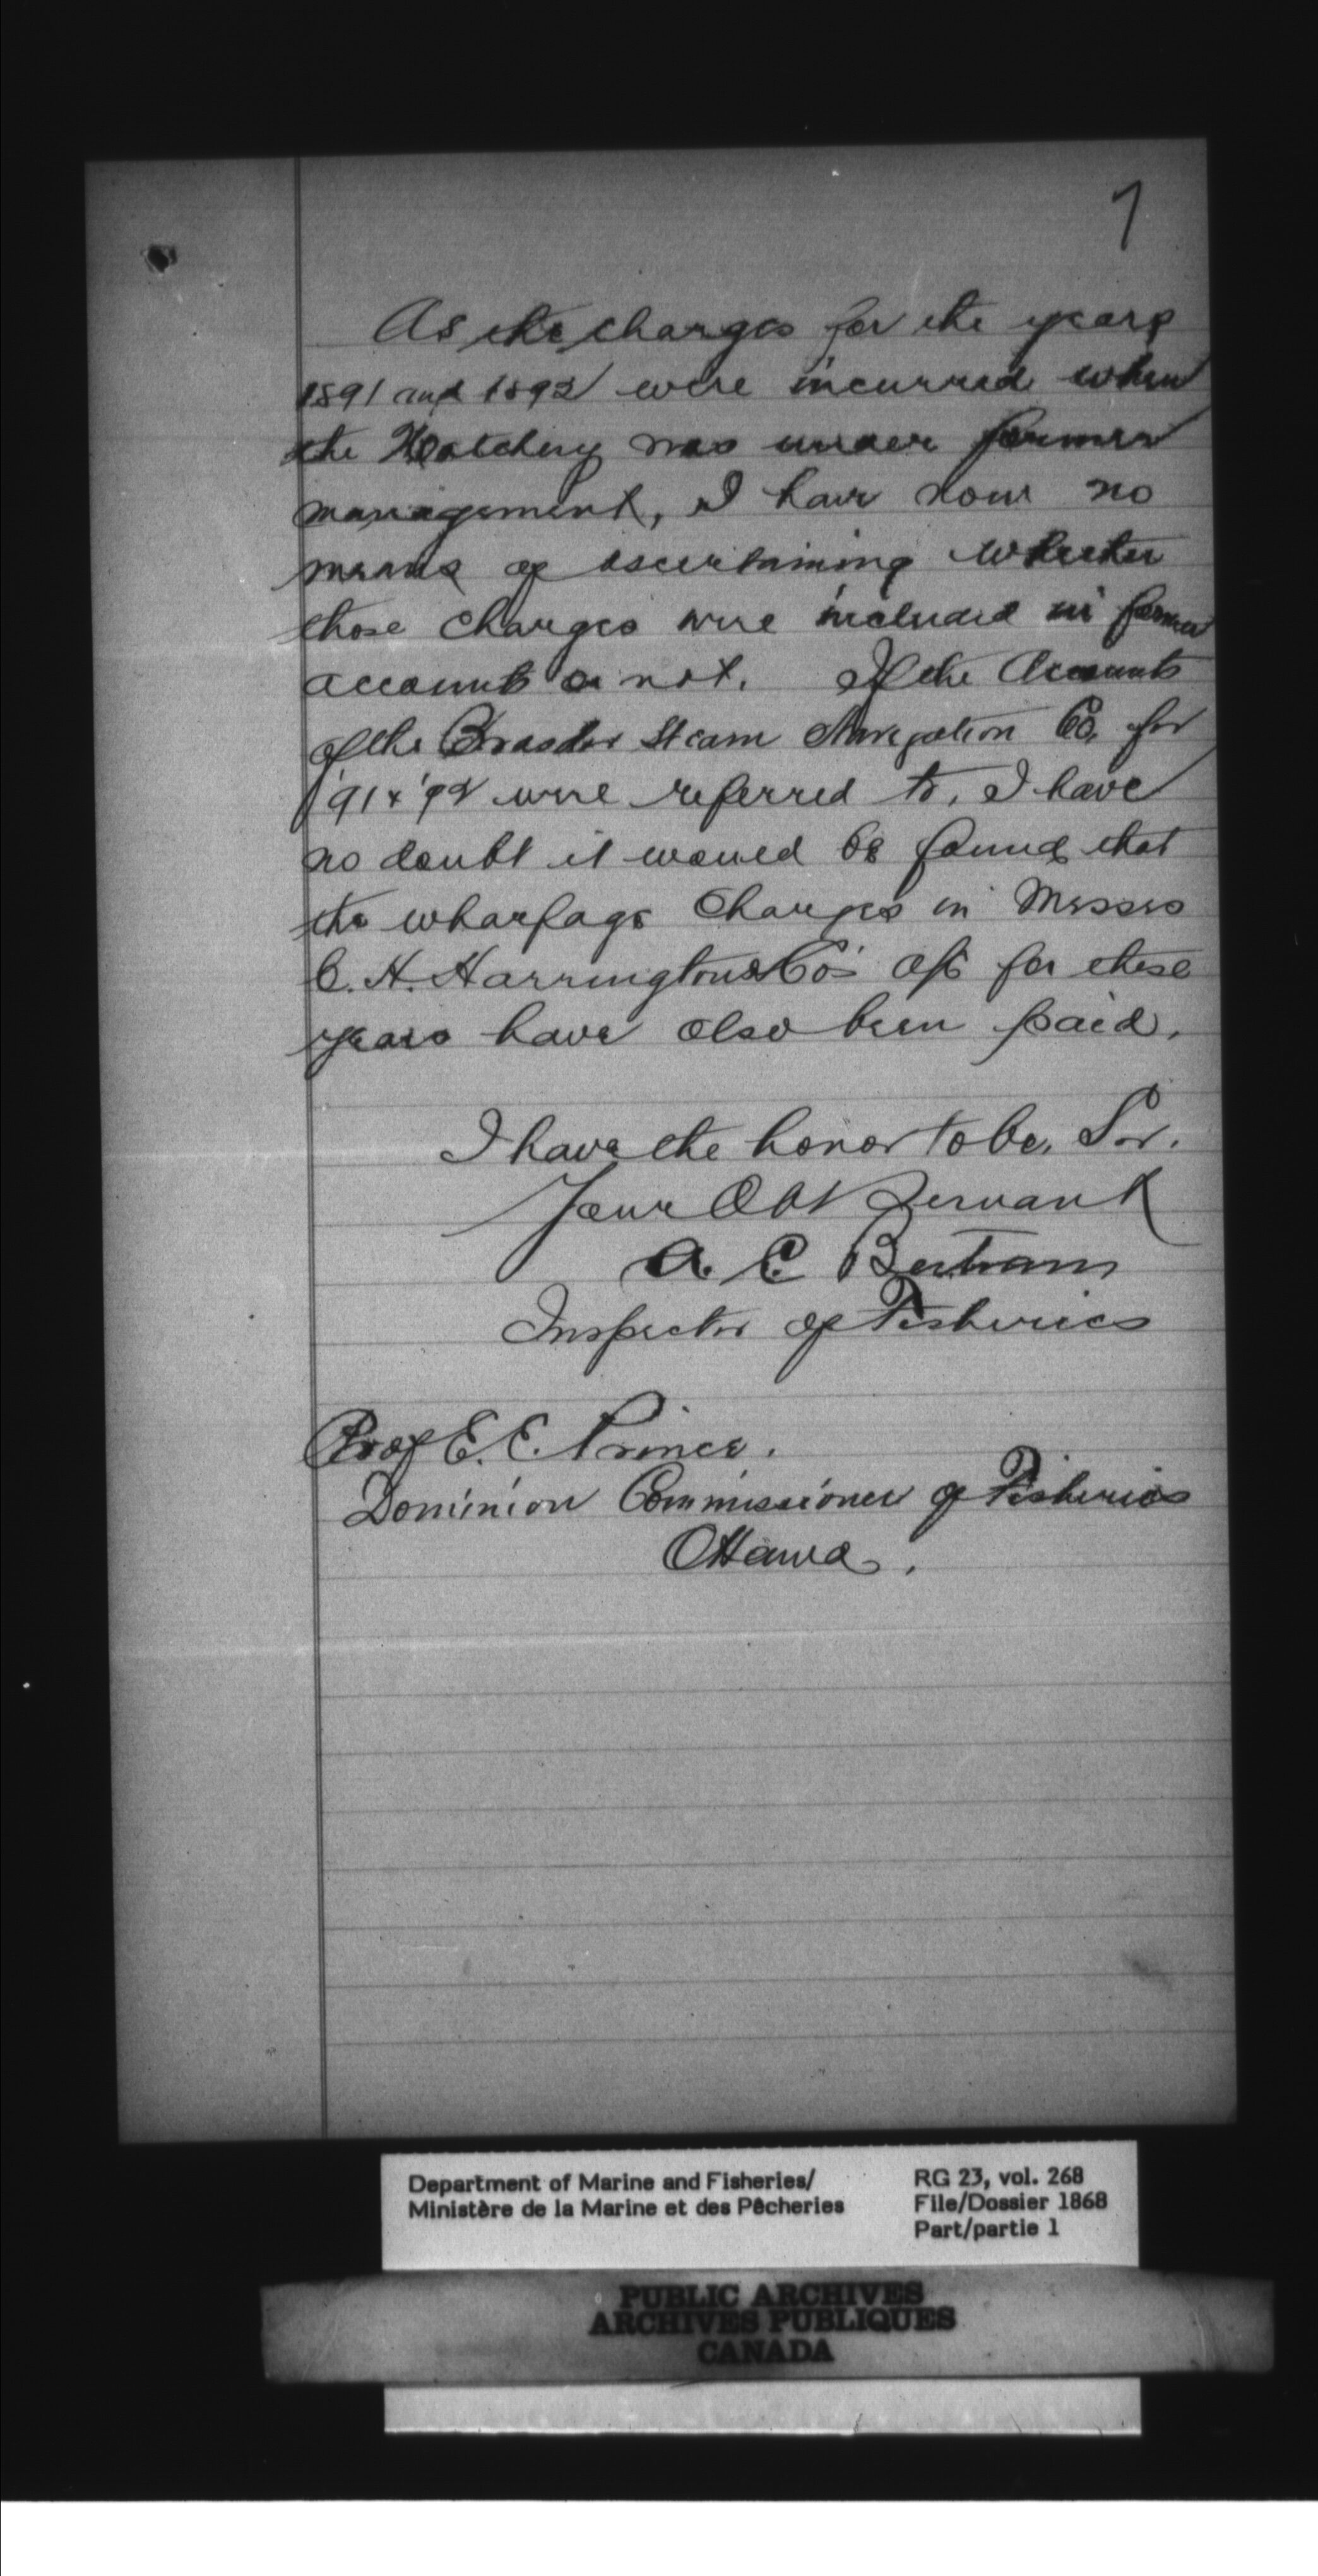 7
As the charges for the years
1891 and 1892 were incurred when
the Hatchery was under former
management, I have now no
means of ascertaining whether
those charges were included in former
accounts or not. If the Accounts
of the Brasdor Steam Navigation Co. for
'91 & '92 were referred to, I have
no doubt it would be found that
the wharfage Charges in Messrs
C. H. Harrington & Co's a/c for these
years have also been paid.
I have the honor to be, Sir.
Your Obt Servant
A. C. Bertram
Inspector of Fisheries
Prof E. E. Prince.
Dominion Commissioner of Fisheries
Ottawa.
Department of Marine and Fisheries/
Ministère de la Marine et des Pêcheries
RG 23, vol. 268
File/Dossier 1868
Part/partie 1
PUBLIC ARCHIVES
ARCHIVES PUBLIQUES
CANADA